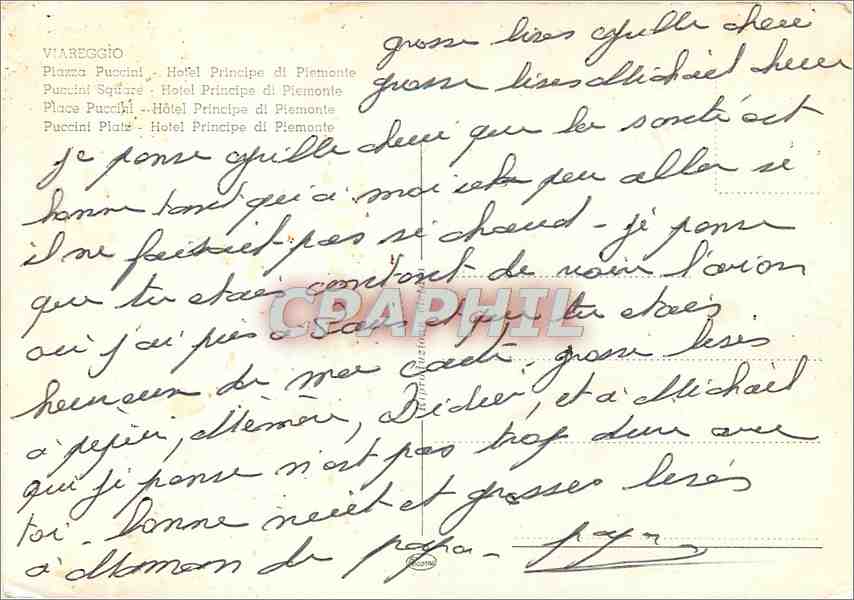 VIAREGGIO
Piazza Puccini - Hotel Principe di Piemonte
Puccini Square - Hotel Principe di Piemonte
Place Puccini - Hôtel Principe di Piemonte
Puccini Platz - Hotel Principe di Piemonte
grosse bises cheri
grosse bises Michaël cheri
je pense cheri que la santé est
bonne tant qu'à moi peu aller si
il ne faisait pas si chaud - je pense
que tu étais content de voir l'avion
où j'ai pris à et que tu étais
heureux de ma carte, grosse bises
à pépère, Mémère, Didier, et à Michaël
qui je pense n'est pas trop dur avec
toi - bonne nuit et grosses bisés
à Maman de papa - papa
CPAPHIL